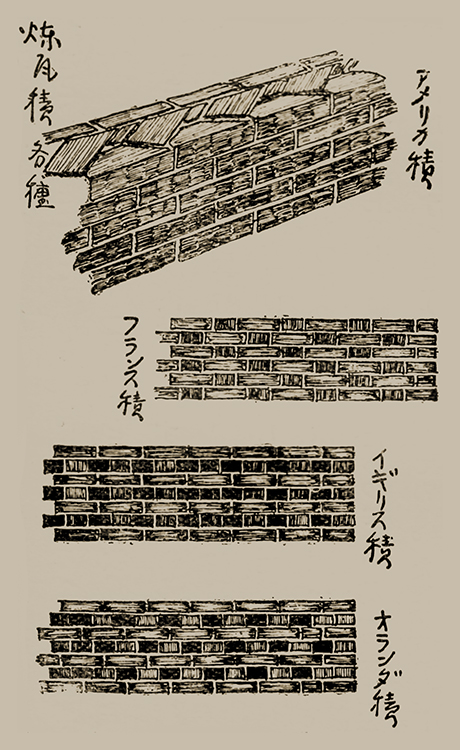 煉瓦積各種
アメリカ積
フランス積
イギリス積
オランダ積